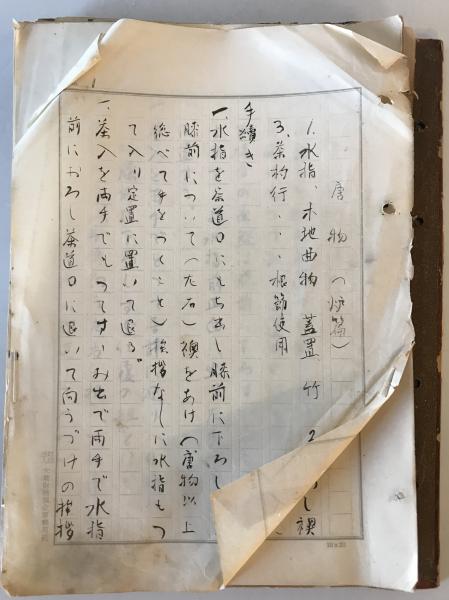 唐物(炉篇)
1. 水指、木地曲物 蓋置 竹 2
し襖
3. 茶杓行、、、根節使用
手続き
一、水指を茶道口にもち出し膝前に下ろし
膝前についてへた右)襖をあけ(唐物以上
総べて手をつくこと)挨拶なしに水指もつ
て入り定置に置いて退る
一、茶入を両手でもつてすゝみ出で両手で水指
前におろし茶道口に退いて向うづけの挨拶